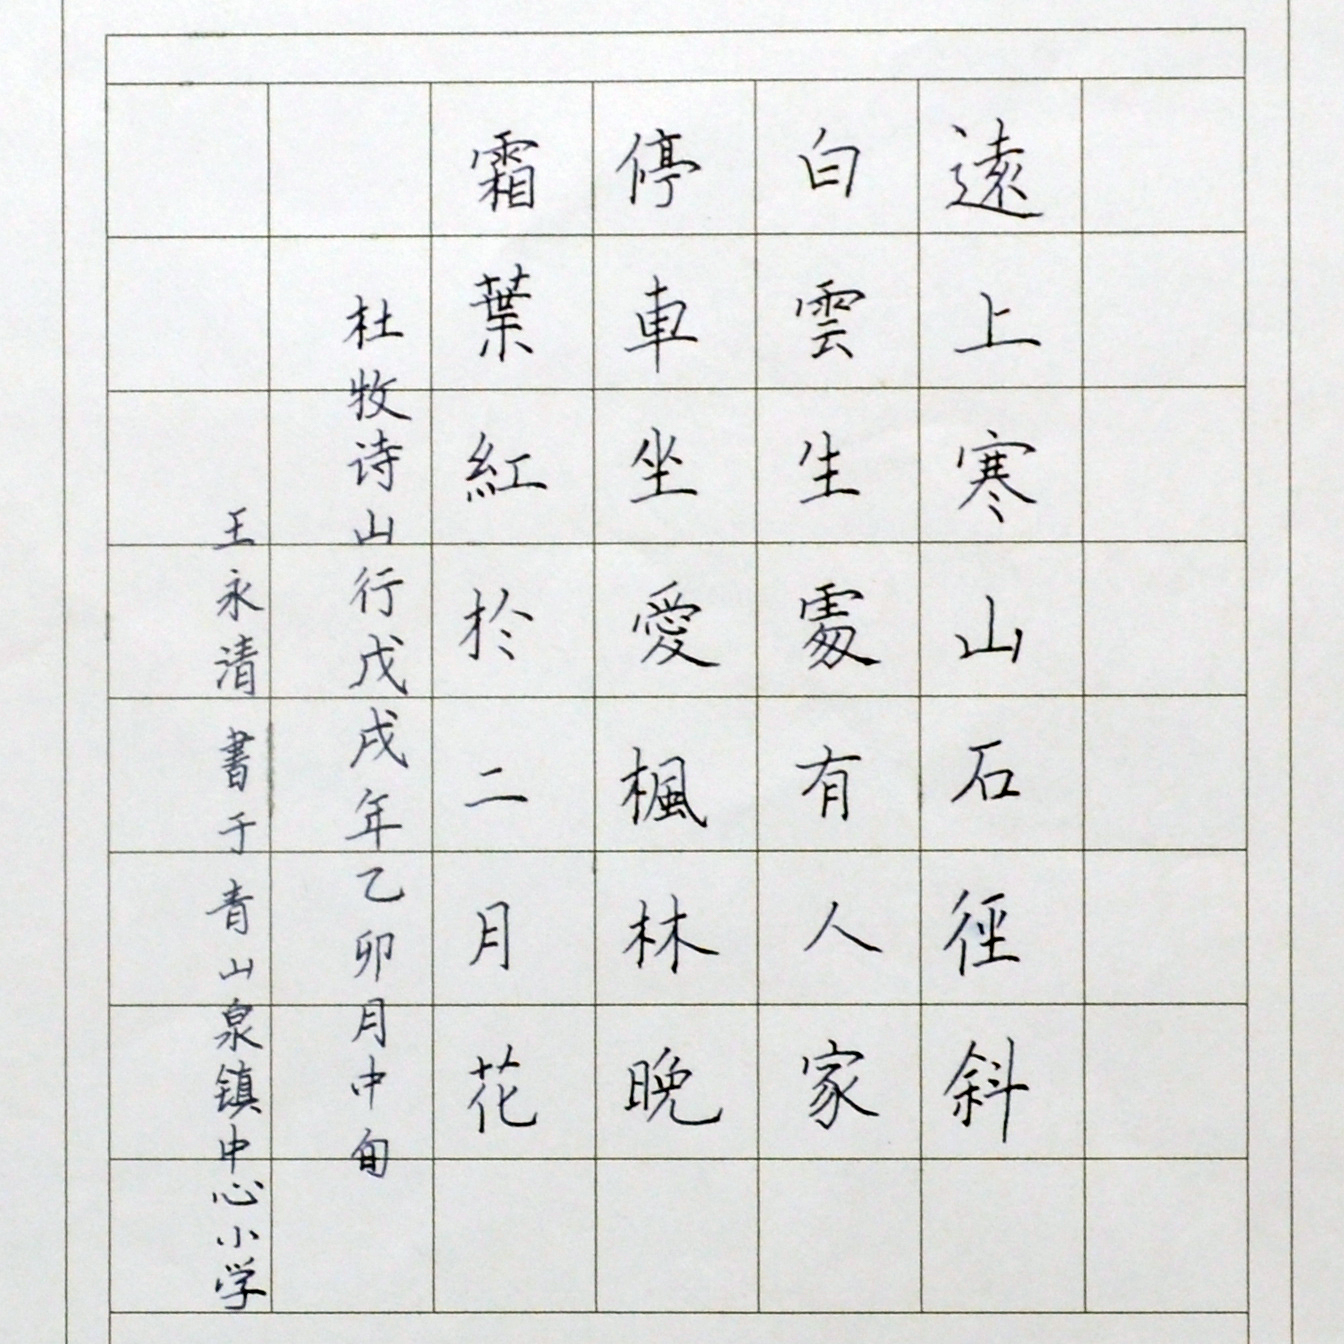 遠上寒山石徑斜
白雲生處有人家
停車坐愛楓林晚
霜葉紅於二月花
杜牧诗山行戊戌年乙卯月中旬
王永清書于青山泉镇中心小学